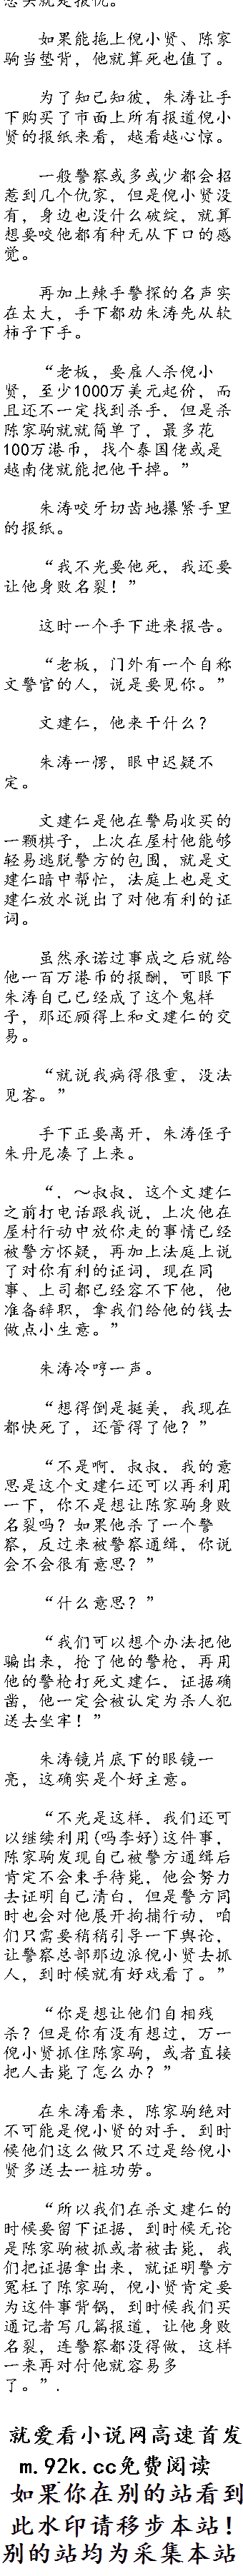 如果能拖上倪小贤、陈家
驹当垫背，他就算死也值了。
为了知己知彼，朱涛让手
下购买了市面上所有报道倪小
贤的报纸来看，越看越心惊。
一般警察或多或少都会招
惹到几个仇家，但是倪小贤没
有，身边也没什么破绽，就算
想要咬他都有种无从下口的感
觉。
再加上辣手警探的名声实
在太大，手下都劝朱涛先从软
柿子下手。
“老板，要雇人杀倪小
贤，至少1000万美元起价，而
且还不一定找到杀手，但是杀
陈家驹就就简单了，最多花
100万港币，找个泰国佬或是
越南佬就能把他干掉。”
朱涛咬牙切齿地攥紧手里
的报纸。
“我不光要他死，我还要
让他身败名裂！”
这时一个手下进来报告。
“老板，门外有一个自称
文警官的人，说是要见你。”
文建仁，他来干什么？
朱涛一愣，眼中迟疑不
定。
文建仁是他在警局收买的
一颗棋子，上次在屋村他能够
轻易逃脱警方的包围，就是文
建仁暗中帮忙，法庭上也是文
建仁放水说出了对他有利的证
词。
虽然承诺过事成之后就给
他一百万港币的报酬，可眼下
朱涛自己已经成了这个鬼样
子，那还顾得上和文建仁的交
易。
“就说我病得很重，没法
见客。”
手下正要离开，朱涛侄子
朱丹尼凑了上来。
“．～叔叔．这个文建仁
之前打电话跟我说，上次他在
屋村行动中放你走的事情已经
被警方怀疑，再加上法庭上说
了对你有利的证词，现在同
事、上司都已经容不下他，他
准备辞职，拿我们给他的钱去
做点小生意。”
朱涛冷哼一声。
“想得倒是挺美，我现在
都快死了，还管得了他？”
“不是啊，叔叔，我的意
思是这个文建仁还可以再利用
一下，你不是想让陈家驹身败
名裂吗？如果他杀了一个警
察，反过来被警察通缉，你说
会不会很有意思？”
“什么意思？”
“我们可以想个办法把他
骗出来，抢了他的警枪，再用
他的警枪打死文建仁，证据确
凿，他一定会被认定为杀人犯
送去坐牢！”
朱涛镜片底下的眼镜一
亮，这确实是个好主意。
“不光是这样，我们还可
以继续利用(吗李好)这件事，
陈家驹发现自己被警方通缉后
肯定不会束手待毙，他会努力
去证明自己清白，但是警方同
时也会对他展开拘捕行动，咱
们只需要稍稍引导一下舆论，
让警察总部那边派倪小贤去抓
人，到时候就有好戏看了。”
“你是想让他们自相残
杀？但是你有没有想过，万一
倪小贤抓住陈家驹，或者直接
把人击毙了怎么办？”
在朱涛看来，陈家驹绝对
不可能是倪小贤的对手，到时
候他们这么做只不过是给倪小
贤多送去一桩功劳。
“所以我们在杀文建仁的
时候要留下证据，到时候无论
是陈家驹被抓或者被击毙，我
们把证据拿出来，就证明警方
冤枉了陈家驹，倪小贤肯定要
为这件事背锅，到时候我们买
通记者写几篇报道，让他身败
名裂，连警察都没得做，这样
一来再对付他就容易多
了。”．
就爱看小说网高速首发
m.92k.cc免费阅读
如果你在别的站看到
此水印请移步本站！
别的站均为采集本站